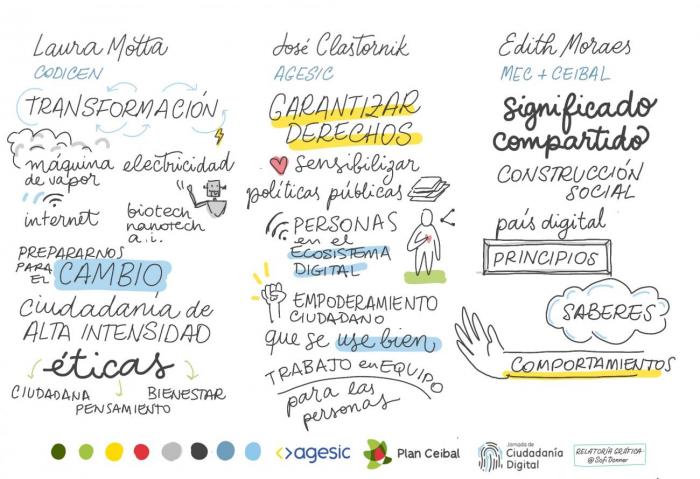 Laura Motta
CODICEN
TRANSFORMACIÓN
máquina
de vapor
electricidad
internet
biotech
nanotech
a.i.
PREPARARNOS
PARA
EL CAMBIO
ciudadanía de
ALTA INTENSIDAD
éticas
CIUDADANA
PENSAMIENTO
BIENESTAR
José Clastornik
AGESIC
GARANTIZAR
DERECHOS
sensibilizar
políticas públicas
PERSONAS
en el
ECOSISTEMA
DIGITAL
EMPODERAMIENTO
CIUDADANO
que se use bien
TRABAJO en EQUIPO
para las
personas
Edith Moraes
MEC + CEIBAL
significado
compartido
CONSTRUCCIÓN
SOCIAL
país digital
PRINCIPIOS
SABERES
COMPORTAMIENTOS
agesic
Plan Ceibal
Jornada de
Ciudadanía
Digital
RELATORÍA GRÁFICA
@SofiDonner